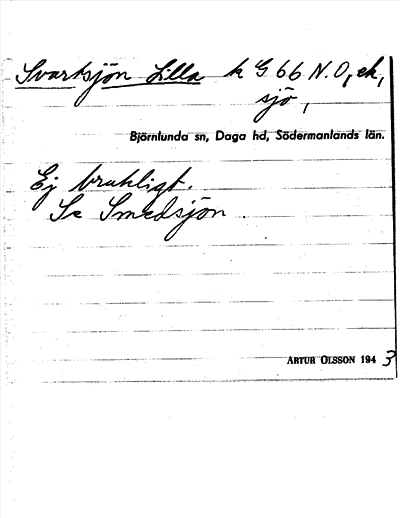 Svartsjön Lilla k G 66 N.O, ek,
sjö,
Björnlunda sn, Daga hd, Södermanlands län.
Ej brukligt.
Se Smedsjön.
ARTUR OLSSON 1943